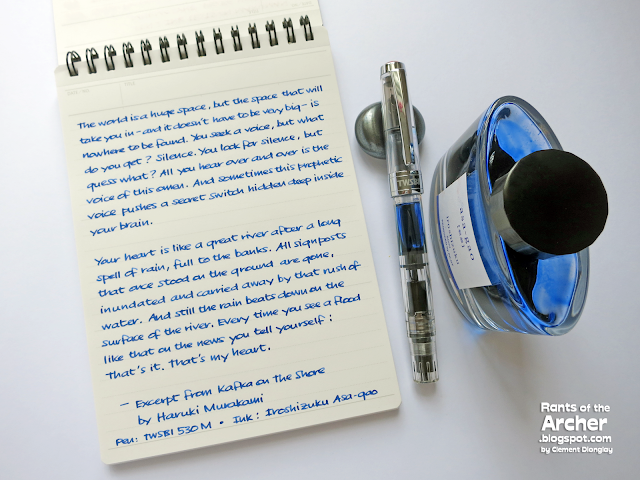 The world is a huge space, but the space that will
take you in - and it doesn't have to be very big - is
nowhere to be found. You seek a voice, but what
do you get? Silence. You look for silence, but
guess what? All you hear over and over is the
voice of this omen. And sometimes this prophetic
voice pushes a secret switch hidden deep inside
your brain.
Your heart is like a great river after a long
spell of rain, full to the banks. All signposts
that once stood on the ground are gone,
inundated and carried away by that rush of
water. And still the rain beats down on the
surface of the river. Every time you see a flood
like that on the news you tell yourself:
That's it. That's my heart.
- Excerpt from Kafka on the Shore
by Haruki Murakami
Pen: TWSBI 530 M • Ink: Iroshizuku Asa-gao
TWSBI
asa-gao
iroshizuku
Rants of the
Archer
.blogspot.com
by Clement Dionglay